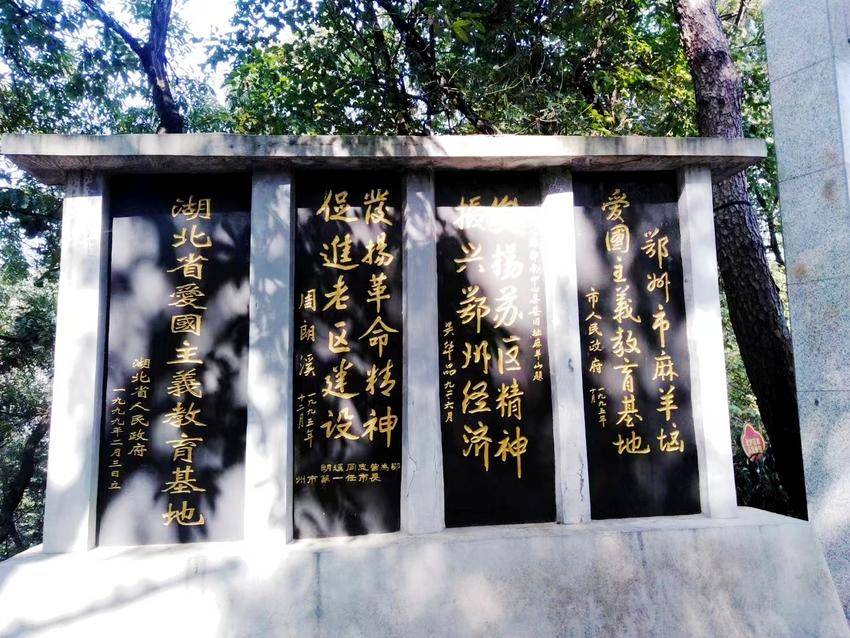 鄂州市麻羊垴
爱國主義教育基地
市人民政府
一九九五年
發揚苏区精神
振兴鄂州经济
發揚革命精神
促進老区建设
周朗溪
一九九三年
十二月
同志曾為鄂
州市第一任市長
湖北省愛國主義教育基地
湖北省人民政府
一九九九年二月三日立